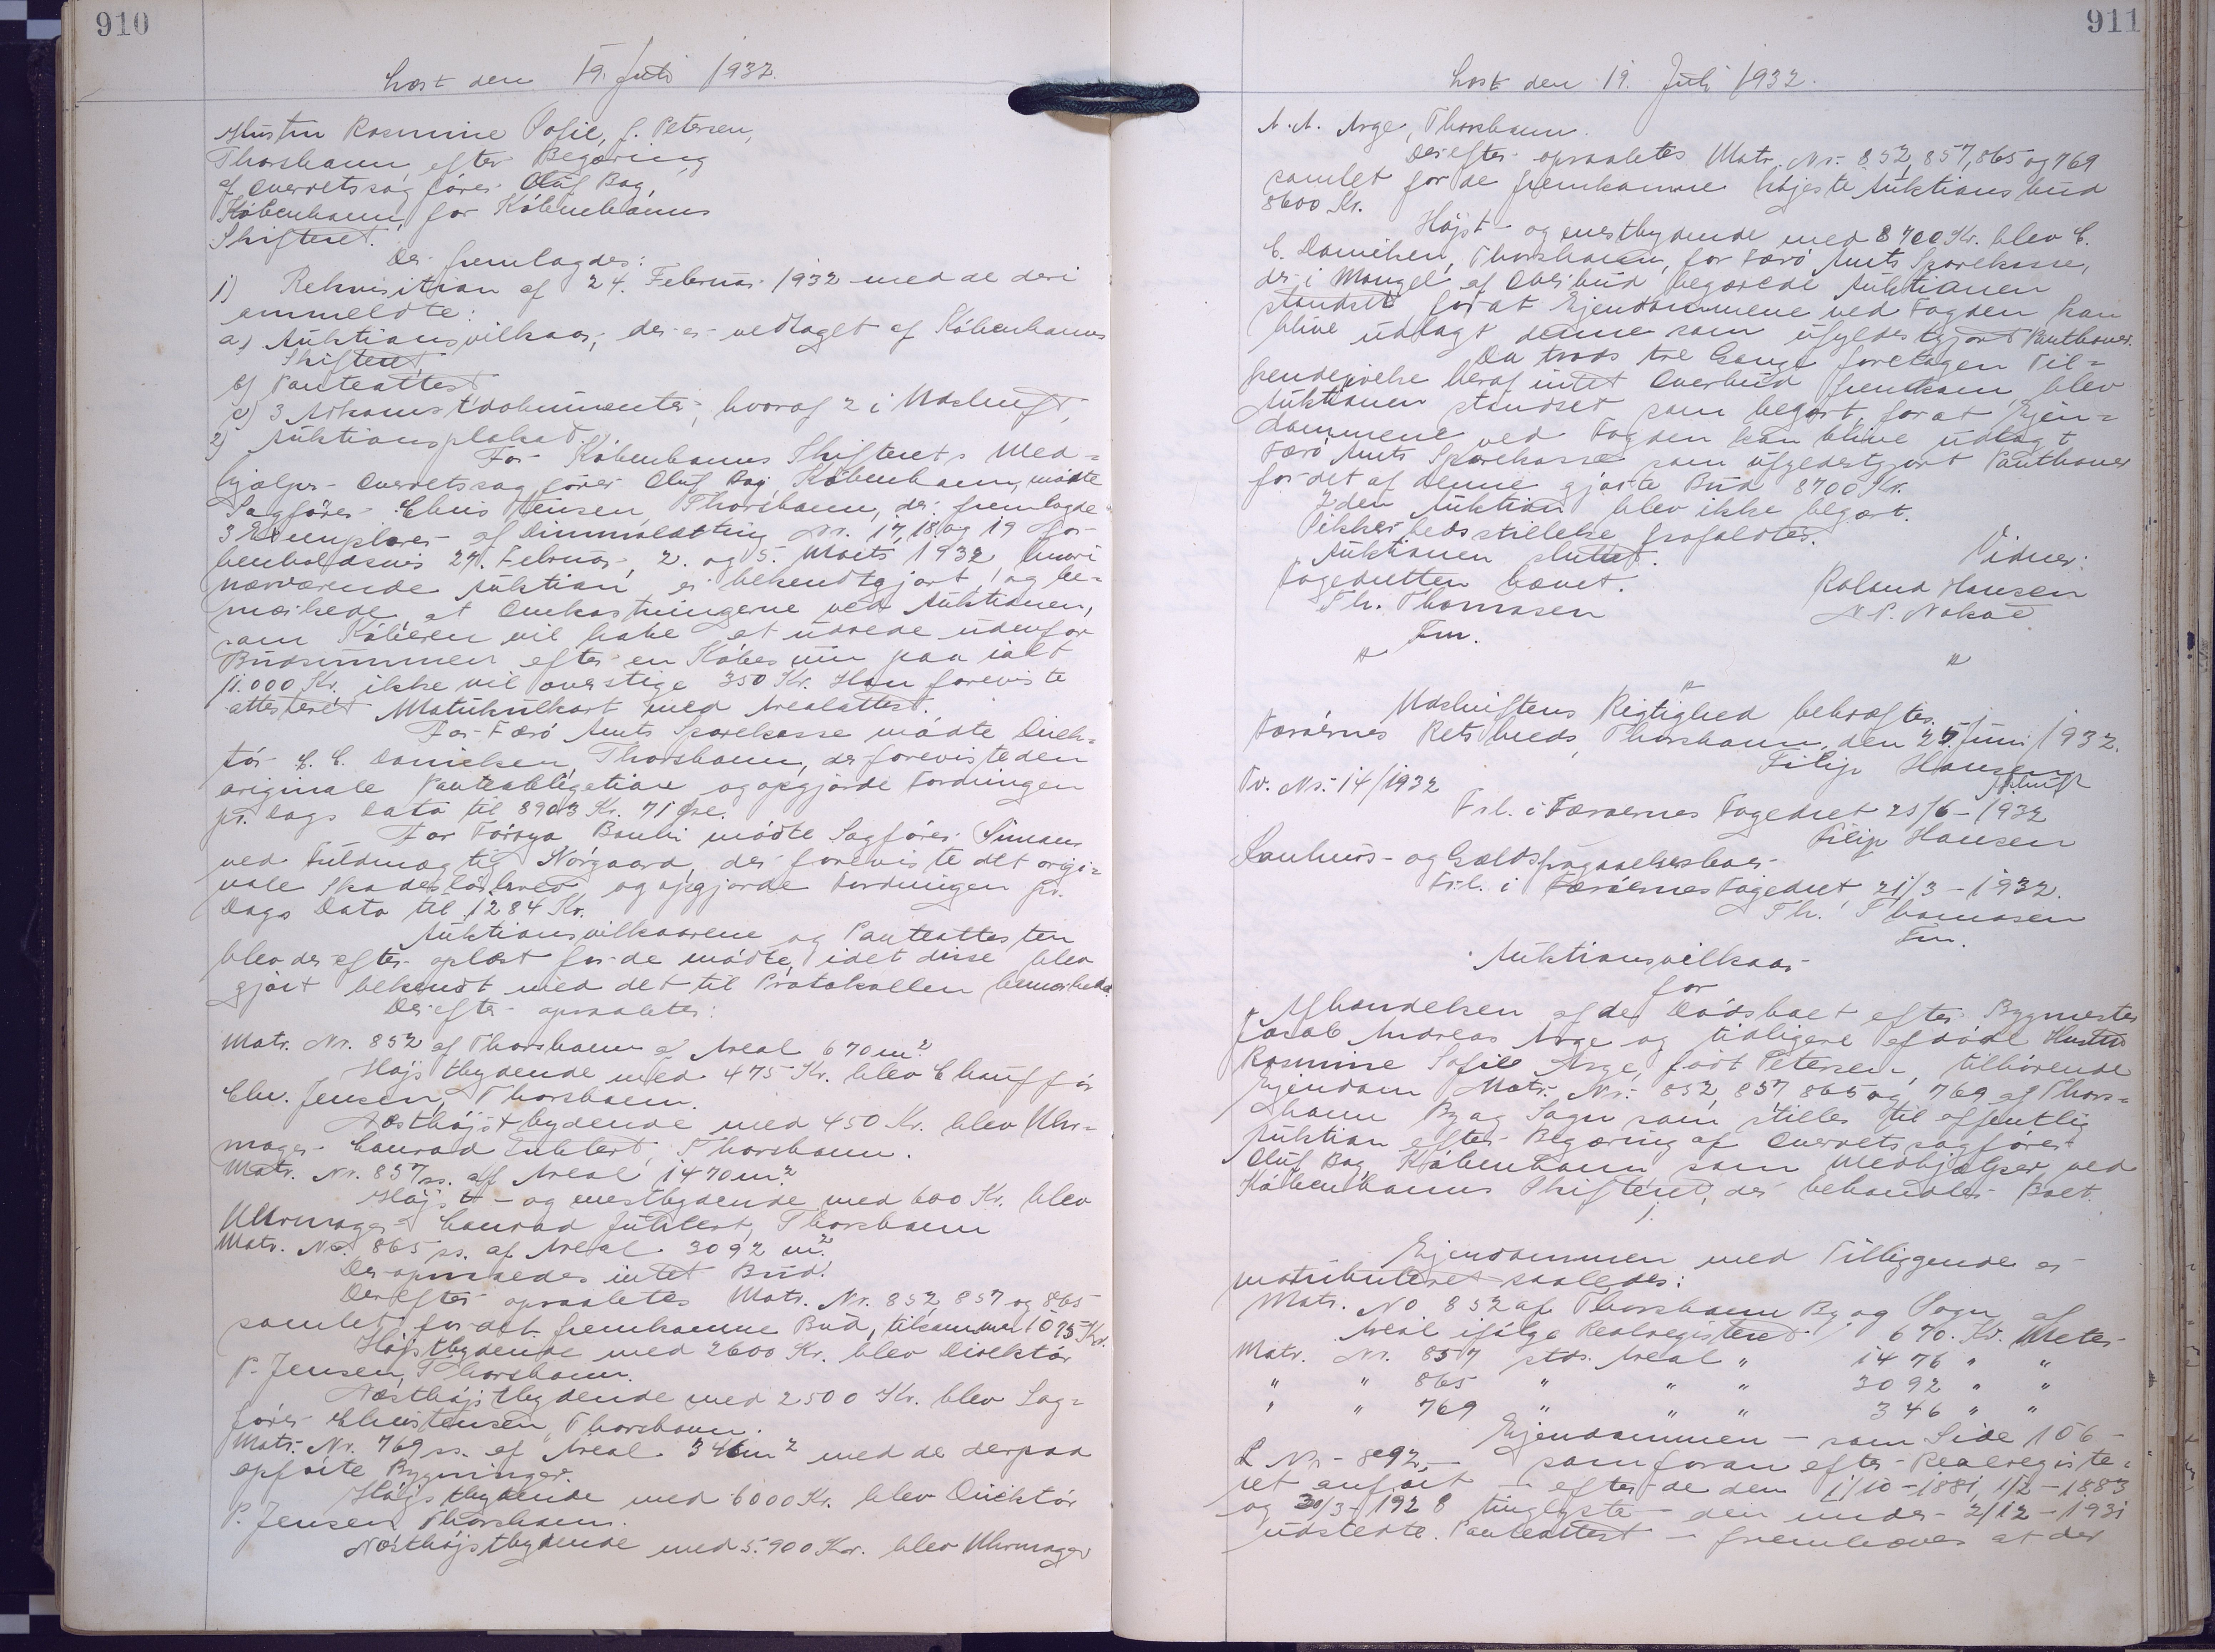 910
Læst den 19. Juli 1932.
Hustru Rosmine Sofie, f. Petersen,
Thorshavn, efter Begæring
af Overretssagfører Oluf Bag,
København, for Københavns
Skifteret.
Der fremlagdes:
1) Rekvisition af 24. Februar 1932 med de deri
anmeldte:
a) Auktionsvilkaar, der er vedtaget af Københavns
Skifteret,
b) Panteattest
c) 3 Adkomstdokumenter, hvoraf 2 i Udskrift,
2) Auktionsplakat.
For Københavns Skifterets Med=
hjælper Overretssagfører Oluf Bag, København, mødte
Sagfører Chris Jensen, Thorshavn, der fremlagde
3 Exemplarer af Dimmalætting Nr. 17, 18 og 19 for-
henholdsvis 27. Februar, 2. og 5. Marts 1932, hvori
nærværende Auktion er bekendtgjort, og be=
mærkede, at Omkostningerne ved Auktionen,
som Køberen vil have at udrede udenfor
Budsummen efter en Købesum paa ialt
11.000 Kr. ikke vil overstige 350 Kr. Han foreviste
attesteret Matrikulkort med Arealattest.
For Færø Amts Sparekasse mødte Direk=
tør C. C. Danielsen, Thorshavn, der foreviste den
originale Panteobligation og opgjorde Fordringen
pr. Dags Dato til 8903 Kr. 71 Øre.
For Føroya Banki mødte Sagfører Simons
ved Fuldmægtig Nörgaard, der foreviste det origi=
nale Skadesløsbrev og opgjorde Fordringen pr.
Dags Dato til 1284 Kr.
Auktionsvilkaarene og Panteattesten
blev derefter oplæst for de mødte, idet disse blev
gjort bekendt med det til Protokollen bemærkede.
Derefter opraabtes:
Matr. Nr. 852 af Thorshavn af Areal 670 m².
Højstbydende med 475 Kr. blev Chauffør
Chr. Jensen, Thorshavn.
Næsthøjstbydende med 450 Kr. blev Uhr=
mager Conrad Juhlert, Thorshavn.
Matr. Nr. 857 ss. af Areal 1470 m².
Højst- og enestbydende med 600 Kr. blev
Uhrmager Conrad Juhlert, Thorshavn
Matr. Nr. 865 ss. af Areal 3092 m².
Der opnaaedes intet Bud.
Derefter opraabtes Matr. Nr. 852, 857 og 865
samlet for det fremkomne Bud, tilsammen 1075 Kr.
Højstbydende med 2600 Kr. blev Direktør
P. Jensen, Thorshavn.
Næsthøjstbydende med 2500 Kr. blev Sag=
fører Christensen, Thorshavn.
Matr. Nr. 769 ss. af Areal 346 m² med de derpaa
opførte Bygninger.
Højstbydende med 6000 Kr. blev Direktør
P. Jensen, Thorshavn.
Næsthøjstbydende med 5.900 Kr. blev Uhrmager
911
Læst den 19. Juli 1932.
A. A. Arge, Thorshavn.
Derefter opraabtes Matr. Nr. 852, 857, 865 og 769
samlet for de fremkomne højeste Auktionsbud
8600 Kr.
Højst- og enestbydende med 8700 Kr. blev C.
C. Danielsen, Thorshavn, for Færø Amts Sparekasse,
der i Mangel af Overbud begærede Auktionen
standset for at Ejendommene ved Fogden kan
blive udlagt denne som ufyldestgjort Panthaver.
Da trods tre Gange foretagen Til=
kendegivelse heraf intet Overbud fremkom, blev
Auktionen standset som begært, for at Ejen=
dommene ved Fogden kan blive udlagt
Færø Amts Sparekasse som ufyldestgjort Panthaver
for det af denne gjorte Bud 8700 Kr.
2den Auktion blev ikke begært.
Sikkerhedsstillelse frafaldtes.
Auktionen sluttet.
Fogedretten hævet.
Vidner:
Th. Thomasen
Roland Hansen
Fm.
N. P. Nolsøe
Udskriftens Rigtighed bekræftes.
Færøernes Retskreds, Thorshavn, den 25. Juni 1932.
Filip Hansen
Tv. Nr. 14/1932
Frl. i Færøernes Fogedret 25/6 - 1932
Filip Hansen
Konkurs- og Gældsfragaaelsesboer
Frl. i Færøernes Fogedret 21/3 - 1932.
Th. Thomasen
Fm.
Auktionsvilkaar
for
Afhændelsen af de Dødsboet efter Bygmester
Jacob Andreas Arge og tidligere afdøde Hustru
Rosmine Sofie Arge, født Petersen, tilhørende
Ejendom Matr. Nr. 852, 857, 865 og 769 af Thors=
havn By og Sogn som stilles til offentlig
Auktion efter Begæring af Overretssagfører
Oluf Bag, København som Medhjælper ved
Københavns Skifteret, der behandler Boet.
1.
Ejendommen med Tilliggende er
matrikuleret saaledes:
Matr. No 852 af Thorshavn By og Sogn af
Areal ifølge Realregisteret 670 Kv. Meter
Matr. Nr. 857 stds. Areal " 1476 " "
" " 865 " " " 3092 " "
" " 769 " " " 346 " "
Ejendommen - som Side 106 -
L Nr - 892, - som foran efter Realregiste=
ret anført - efter de den 1/10 - 1881, 1/2 - 1883
og 30/3 - 1928 tinglyste - den under 2/12 - 1931
udstedte Panteattest - fremhæves at der